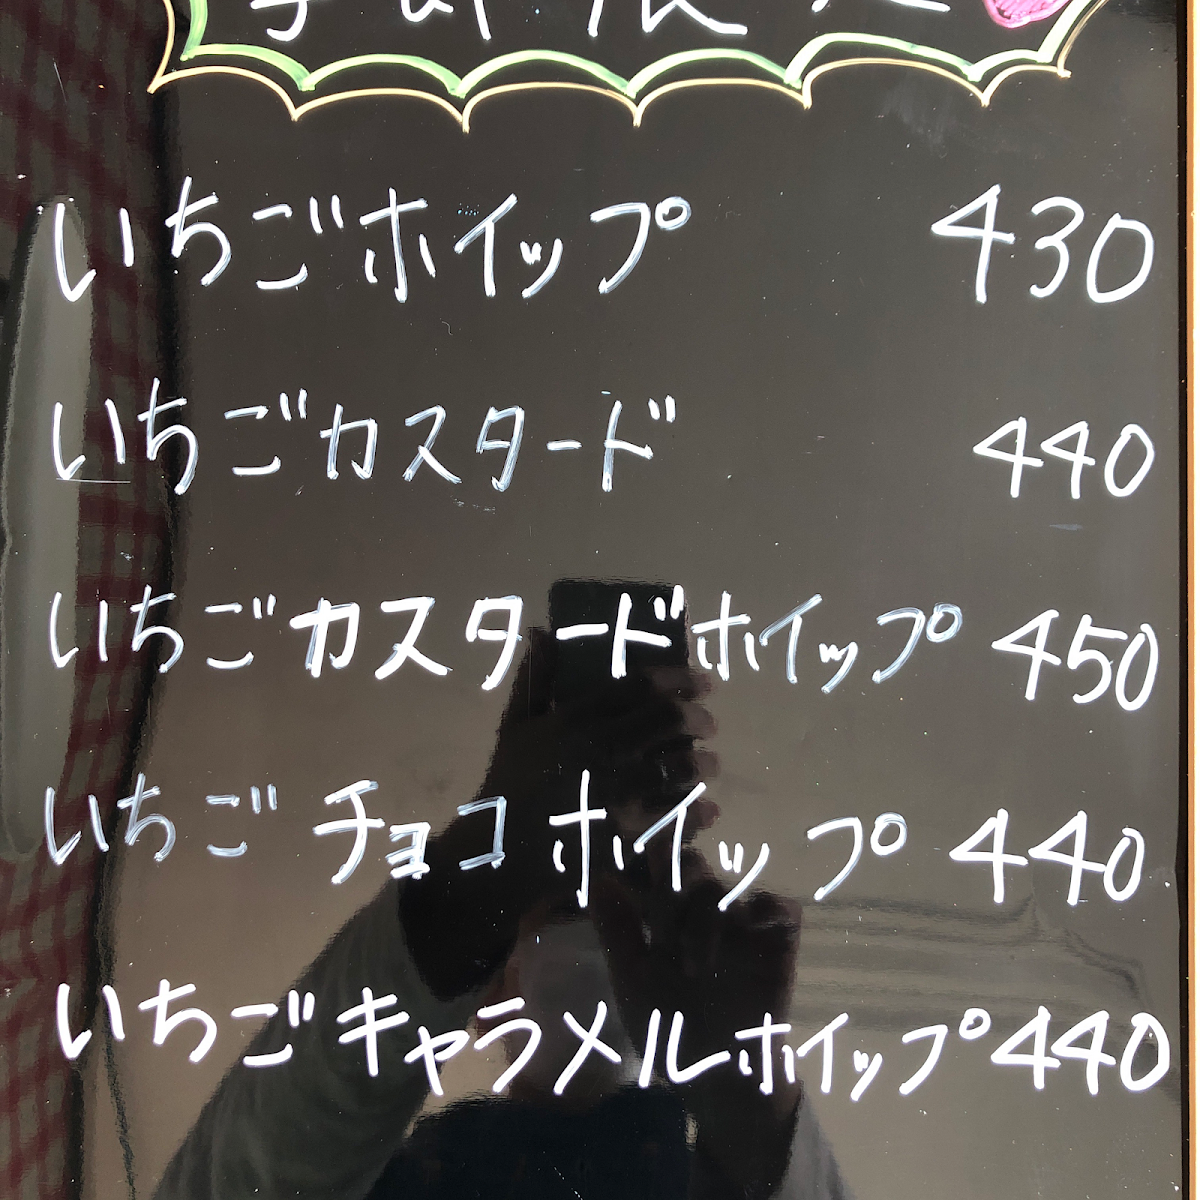 季節限定
いちごホイップ 430
いちごカスタード 440
いちごカスタードホイップ 450
いちごチョコホイップ 440
いちごキャラメルホイップ 440